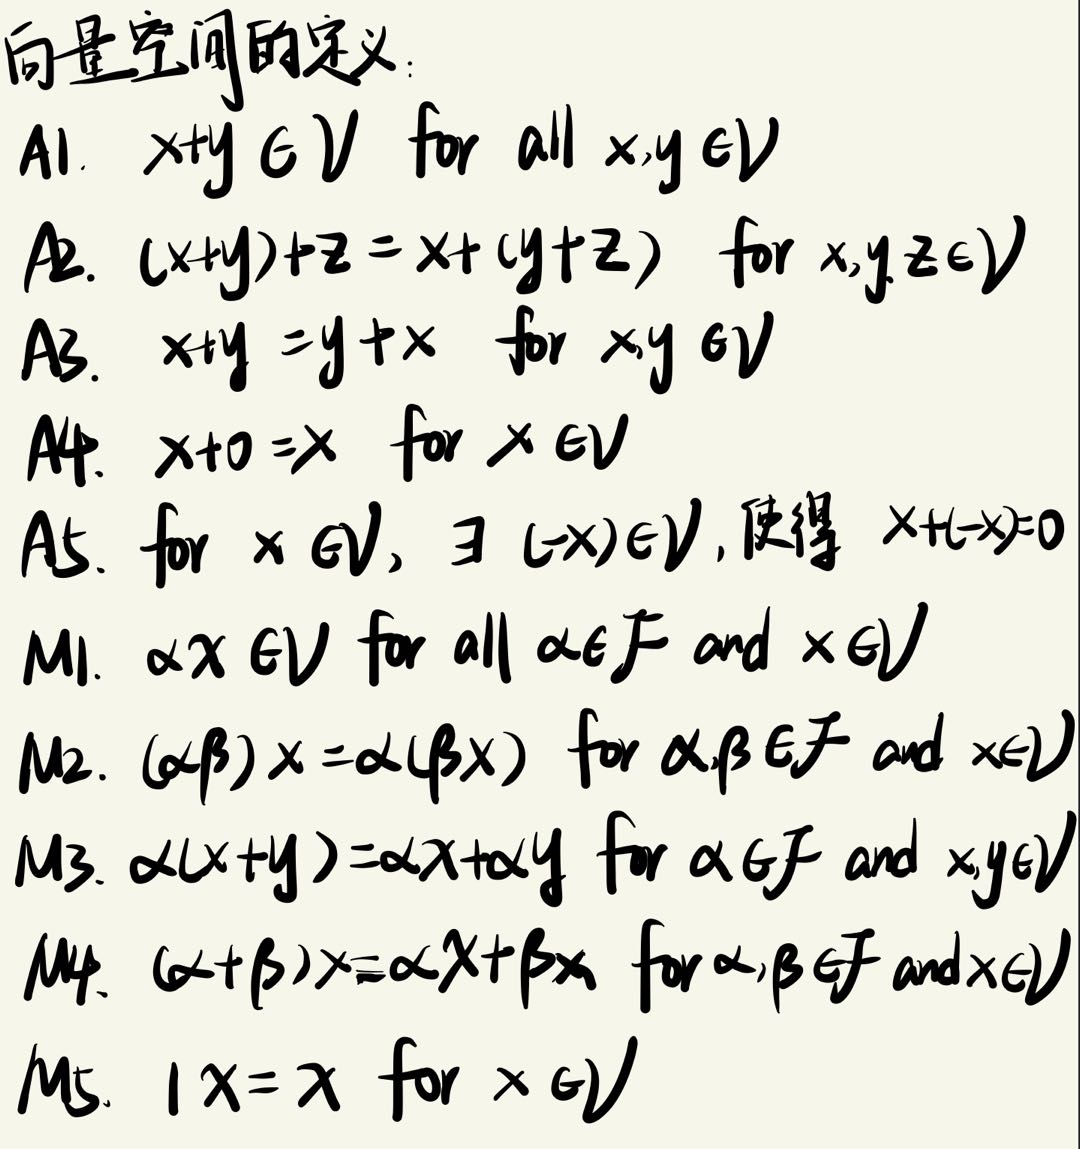 向量空间的定义:
A1. x+y ∈ V for all x,y ∈ V
A2. (x+y)+z = x+(y+z) for x,y,z ∈ V
A3. x+y = y+x for x,y ∈ V
A4. x+0 = x for x ∈ V
A5. for x ∈ V, ∃ (-x) ∈ V, 使得 x+(-x)=0
M1. αx ∈ V for all α ∈ F and x ∈ V
M2. (αβ)x = α(βx) for α,β ∈ F and x ∈ V
M3. α(x+y) = αx+αy for α ∈ F and x,y ∈ V
M4. (α+β)x = αx+βx for α,β ∈ F and x ∈ V
M5. 1x = x for x ∈ V